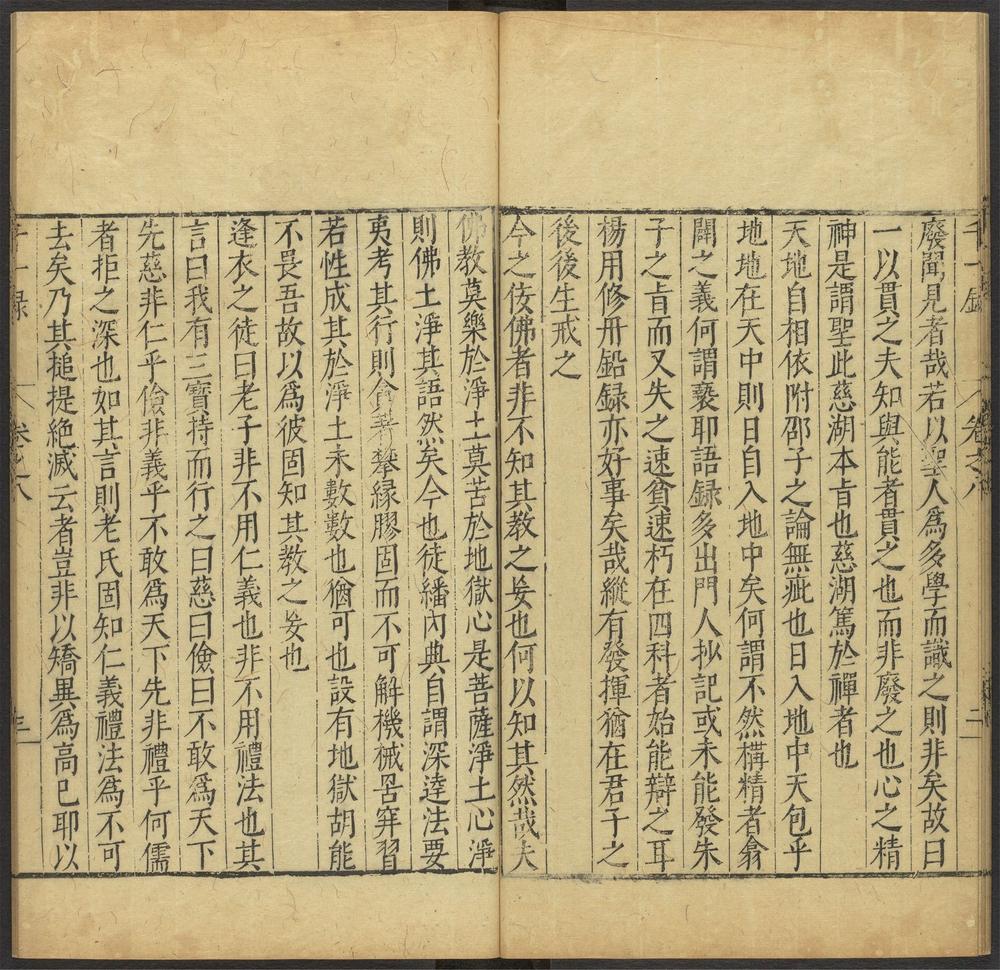 千一錄
卷之八
二
廢聞見者哉若以聖人爲多學而識之則非矣故曰
一以貫之夫知與能者貫之也而非廢之也心之精
神是謂聖此慈湖本㫖也慈湖篤於禪者也
天地自相依附邵子之論無疵也日入地中天包乎
地地在天中則日自入地中矣何謂不然構精者翕
闢之義何謂褻耶語録多出門人抄記或未能發朱
子之㫖而又失之速貧速朽在四科者始能辯之耳
楊用修冊鉛録亦好事矣哉縱有發揮猶在君子之
後後生戒之
今之佞佛者非不知其教之妄也何以知其然哉夫
佛教莫樂於淨土莫苦於地獄心是菩薩淨土心淨
則佛土淨其語然矣今也徒繙內典自謂深逹法要
夷考其行則貪攀縁膠固而不可解機械罟穽習
若性成其於淨土未數數也猶可也設有地獄胡能
不畏吾故以爲彼固知其教之妄也
逢衣之徒曰老子非不用仁義也非不用禮法也其
言曰我有三寶持而行之曰慈曰儉曰不敢爲天下
先慈非仁乎儉非義乎不敢爲天下先非禮乎何儒
者拒之深也如其言則老氏固知仁義禮法爲不可
去矣乃其搥提絶滅云者豈非以矯異爲高已耶以
千一録
卷之八
三